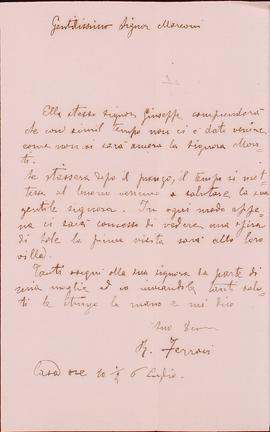 Gentilissimo Signor Marconi
Ella stesso Signor Giuseppe comprenderà
che con simil tempo non ci è dato venire
come non vi sarà ancora la Signora Mon-
ti.
Se stassera dopo il pranzo, il tempo si met-
tesse al buono verremo a salutare la sua
gentile signora. In ogni modo appe-
na ci sarà concesso di vedere una spira
di sole la prima visita sarà alla loro
villa.
Tanti ossequi alla sua signora da parte di
mia moglie ed io unendole tanti salu-
ti le stringo la mano e mi dico
Suo
Ferrari
Casa ore 10 ½ 6 Luglio.